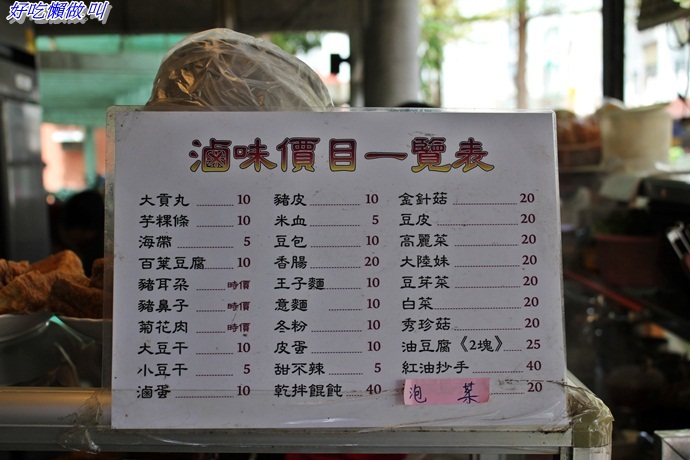 好吃懶做 叫
滷味價目一覽表
大貢丸 10
芋粿條 10
海帶 5
百葉豆腐 10
豬耳朶 時價
豬鼻子 時價
菊花肉 時價
大豆干 10
小豆干 5
滷蛋 10
豬皮 10
米血 5
豆包 10
香腸 20
王子麵 10
意麵 10
冬粉 10
皮蛋 10
甜不辣 5
乾拌餛飩 40
金針菇 20
豆皮 20
高麗菜 20
大陸妹 20
豆芽菜 20
白菜 20
秀珍菇 20
油豆腐《2塊》 25
紅油抄手 40
泡菜 20